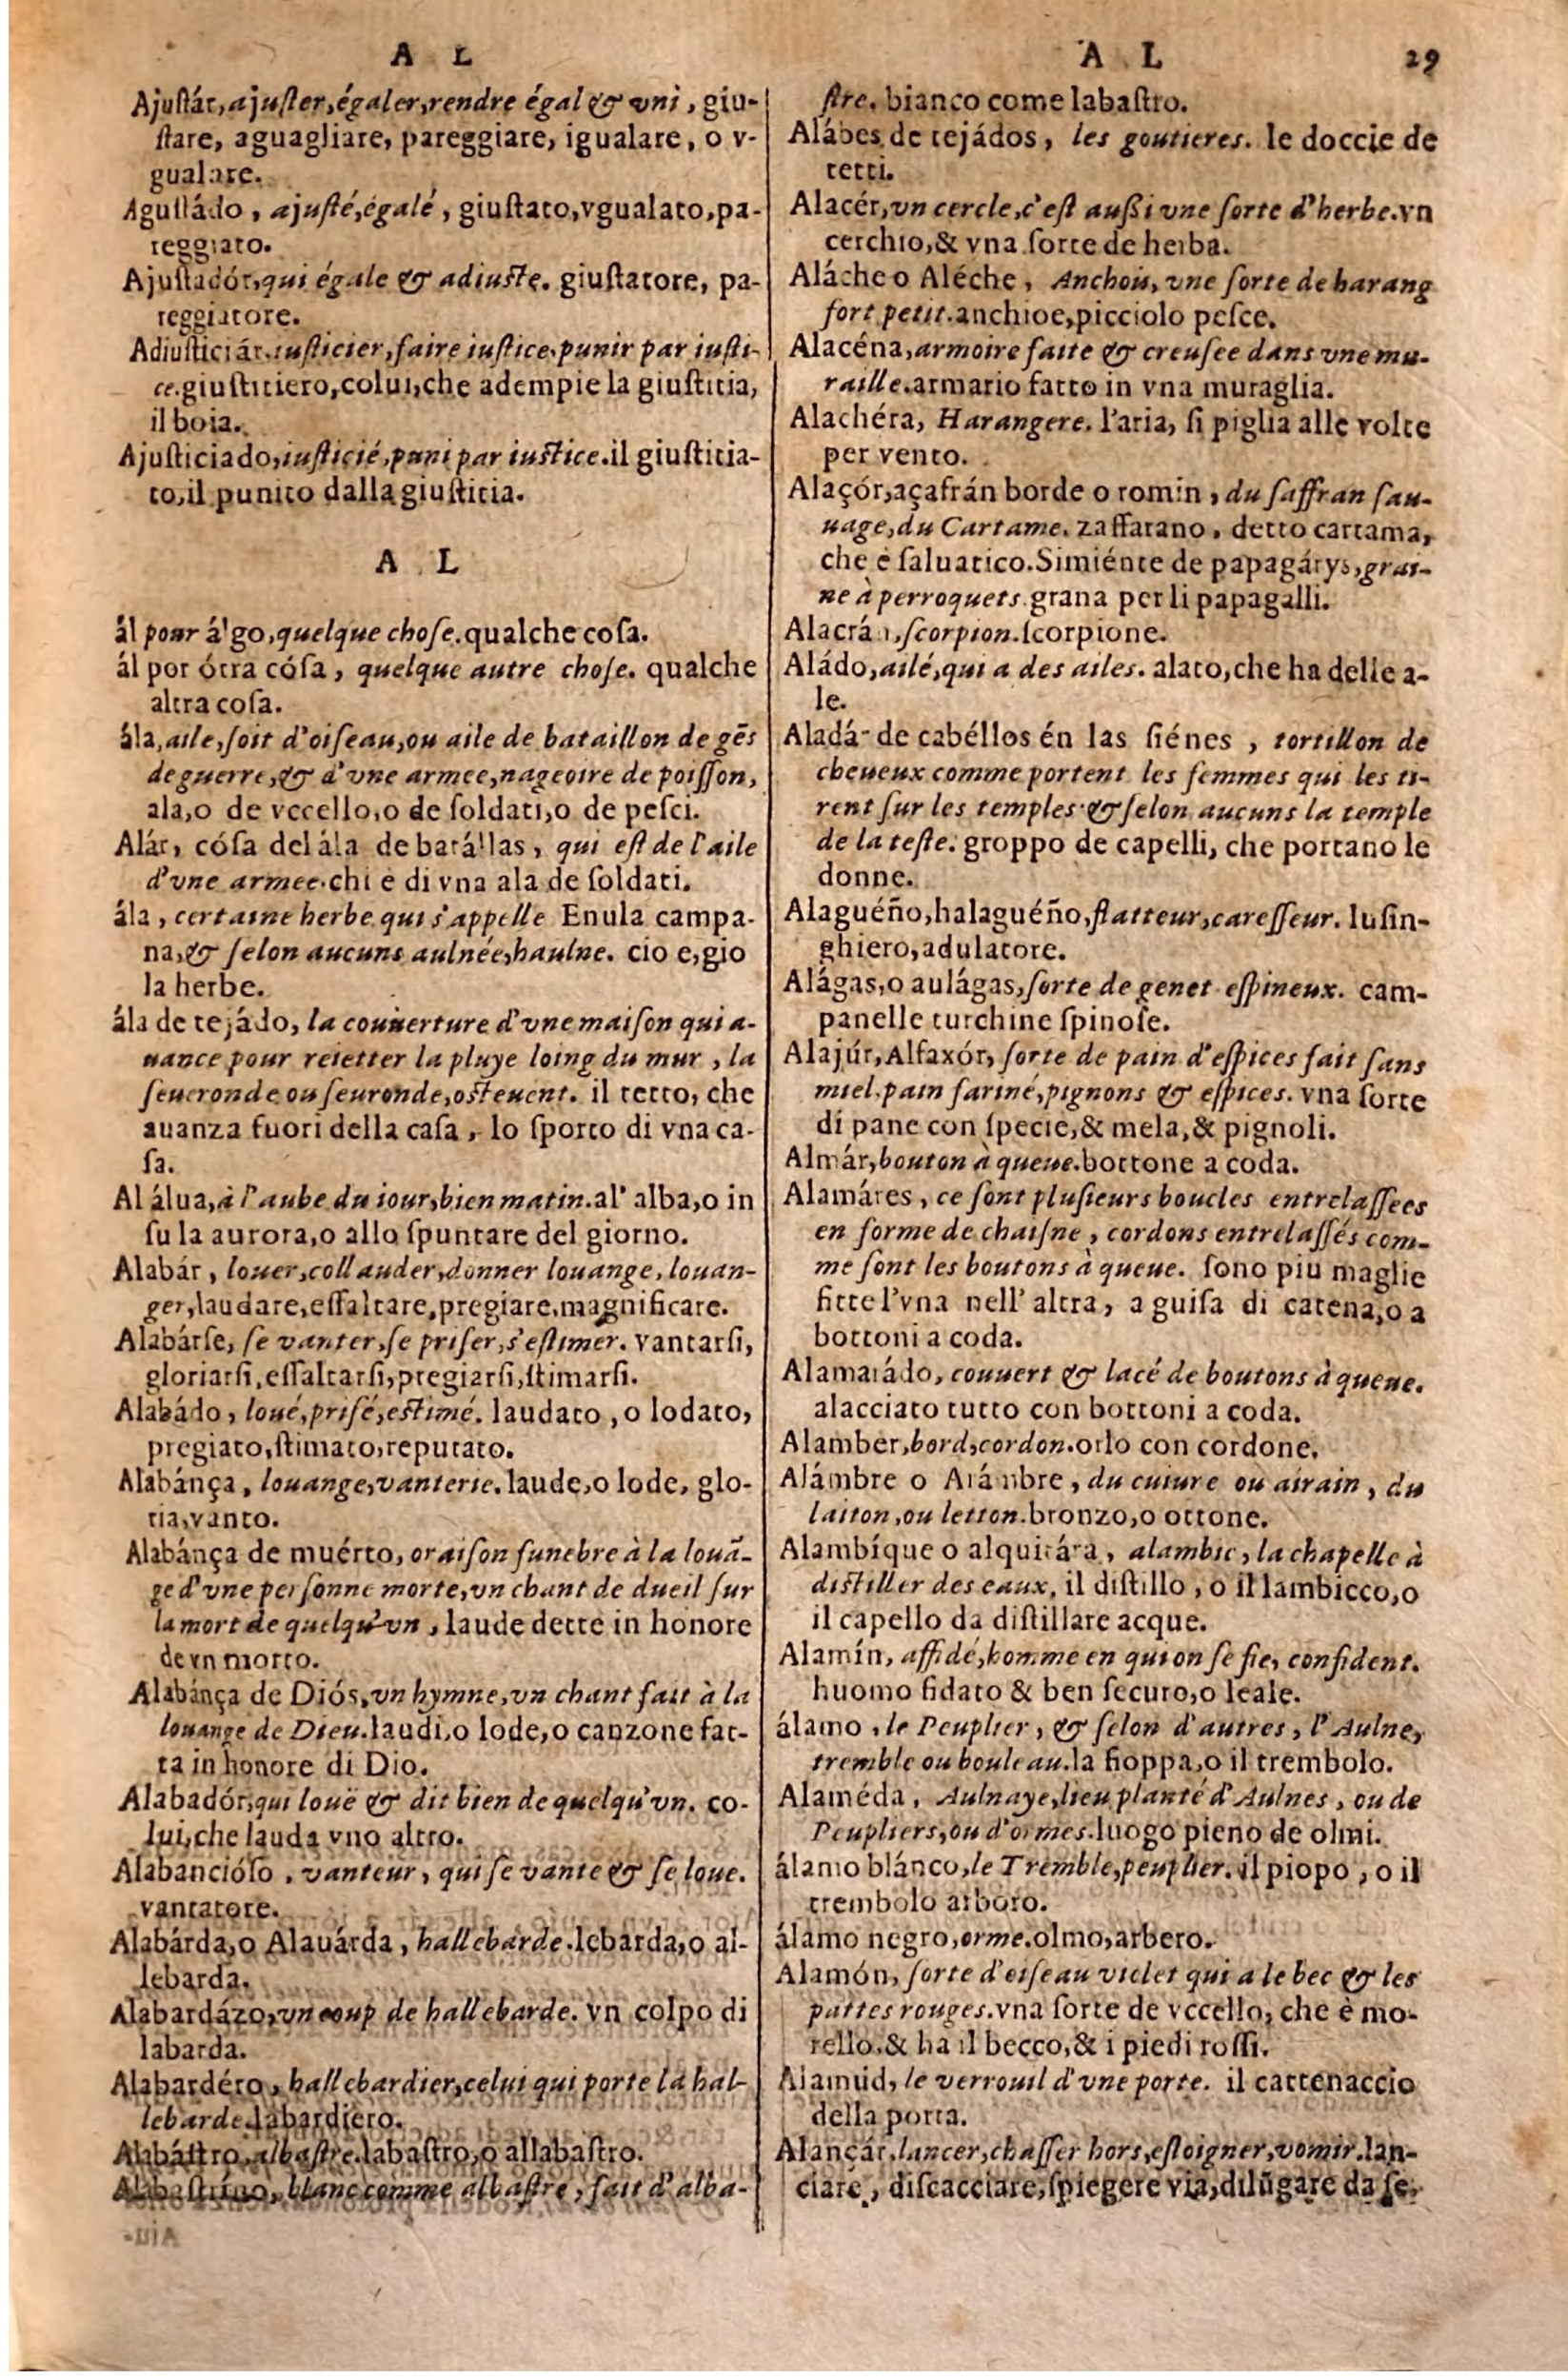 A L
Ajuſtár, ajuſter, égaler, rendre égal & vni, giu-
ſtare, aguagliare, pareggiare, igualare, o v-
gualare.
Aguſtádo, ajuſté, égalé, giuſtato, vgualato, pa-
reggiato.
Ajuſtadór, qui égale & adiuſte. giuſtatore, pa-
reggiatore.
Adiuſticiár, iuſticier, faire iuſtice, punir par iuſti-
ce. giuſtitiero, colui, che adempie la giuſtitia,
il boia.
Ajuſticiado, iuſticié, puni par iuſtice. il giuſtitia-
to, il punito dalla giuſtitia.
A L
ál pour álgo, quelque choſe. qualche coſa.
ál por ótra cóſa, quelque autre choſe. qualche
altra coſa.
ála, aile, ſoit d'oiſeau, ou aile de bataillon de gēs
de guerre, & d'vne armee, nageoire de poiſſon,
ala, o de vccello, o de ſoldati, o de peſci.
Alár, cóſa del ála de batállas, qui eſt de l'aile
d'vne armee. chi e di vna ala de ſoldati.
ála, certaine herbe qui s'appelle Enula campa-
na, & ſelon aucuns aulnée, haulne. cio e, gio
la herbe.
ála de tejádo, la couuerture d'vne maiſon qui a-
uance pour reietter la pluye loing du mur, la
ſeueronde ou ſeuronde, oſteuent. il tetto, che
auanza fuori della caſa, lo ſporto di vna ca-
ſa.
Al álua, à l'aube du iour, bien matin. al' alba, o in
ſu la aurora, o allo ſpuntare del giorno.
Alabár, louer, collauder, donner louange, louan-
ger, laudare, eſſaltare, pregiare, magnificare.
Alabárſe, ſe vanter, ſe priſer, s'eſtimer. vantarſi,
gloriarſi, eſſaltarſi, pregiarſi, ſtimarſi.
Alabádo, loué, priſé, eſtimé. laudato, o lodato,
pregiato, ſtimato, reputato.
Alabánça, louange, vanterie. laude, o lode, glo-
ria, vanto.
Alabánça de muérto, oraiſon funebre à la louā-
ge d'vne perſonne morte, vn chant de dueil ſur
la mort de quelqu'vn, laude dette in honore
de vn morto.
Alabánça de Diós, vn hymne, vn chant fait à la
louange de Dieu. laudi, o lode, o canzone fat-
ta in honore di Dio.
Alabadór, qui louë & dit bien de quelqu'vn. co-
lui, che lauda vno altro.
Alabancióſo, vanteur, qui ſe vante & ſe loue.
vantatore.
Alabárda, o Alauárda, hallebarde. lebarda, o al-
lebarda.
Alabardázo, vn coup de hallebarde. vn colpo di
labarda.
Alabardéro, hallebardier, celui qui porte la hal-
lebarde. labardiero.
Alabáſtro, albaſtre. labaſtro, o allabaſtro.
Alabaſtríno, blanc comme albaſtre, fait d'alba-
A L 29
ſtre. bianco come labaſtro.
Alábes de tejádos, les goutieres. le doccie de
tetti.
Alacér, vn cercle, c'eſt auſſi vne ſorte d'herbe. vn
cerchio, & vna ſorte de herba.
Aláche o Aléche, Anchois, vne ſorte de harang
fort petit. anchioe, picciolo peſce.
Alacéna, armoire faite & creuſee dans vne mu-
raille. armario fatto in vna muraglia.
Alachéra, Harangere. l'aria, ſi piglia alle volte
per vento.
Alaçór, açafrán borde o romin, du ſaffran ſau-
uage, du Cartame. zaffarano, detto cartama,
che è ſaluatico. Simiénte de papagáys, grai-
ne à perroquets. grana per li papagalli.
Alacrán, ſcorpion. ſcorpione.
Aládo, ailé, qui a des ailes. alato, che ha delle a-
le.
Aladár de cabéllos én las ſiénes, tortillon de
cheueux comme portent les femmes qui les ti-
rent ſur les temples & ſelon aucuns la temple
de la teſte. groppo de capelli, che portano le
donne.
Alaguéño, halaguéño, flatteur, careſſeur. luſin-
ghiero, adulatore.
Alágas, o aulágas, ſorte de genet eſpineux. cam-
panelle turchine ſpinoſe.
Alajúr, Alfaxór, ſorte de pain d'eſpices fait ſans
miel. pain fariné, pignons & eſpices. vna ſorte
di pane con ſpecie, & mela, & pignoli.
Almár, bouton à queue. bottone a coda.
Alamáres, ce ſont pluſieurs boucles entrelaſſees
en forme de chaiſne, cordons entrelaſſés com-
me ſont les boutons à queue. ſono piu maglie
fitte l'vna nell' altra, a guiſa di catena, o a
bottoni a coda.
Alamarádo, couuert & lacé de boutons à queue.
alacciato tutto con bottoni a coda.
Alamber, bord, cordon. orlo con cordone.
Alámbre o Arámbre, du cuiure ou airain, du
laiton, ou letton. bronzo, o ottone.
Alambíque o alquitára, alambic, la chapelle à
diſtiller des eaux, il diſtillo, o il lambicco, o
il capello da diſtillare acque.
Alamín, affidé, homme en qui on ſe fie, confident.
huomo fidato & ben ſecuro, o leale.
álamo, le Peuplier, & ſelon d'autres, l'Aulne,
tremble ou bouleau. la fioppa, o il trembolo.
Alaméda, Aulnaye, lieu planté d'Aulnes, ou de
Peupliers, ou d'ormes. luogo pieno de olmi.
álamo blánco, le Tremble, peuplier. il piopo, o il
trembolo arboro.
álamo negro, orme. olmo, arbero.
Alamón, ſorte d'oiſeau violet qui a le bec & les
pattes rouges. vna ſorte de vccello, che è mo-
rello, & ha il becco, & i piedi roſſi.
Alamud, le verrouil d'vne porte. il cattenaccio
della porta.
Alançár, lancer, chaſſer hors, eſloigner, vomir. lan-
ciare, diſcacciare, ſpiegere via, dilūgare da ſe.